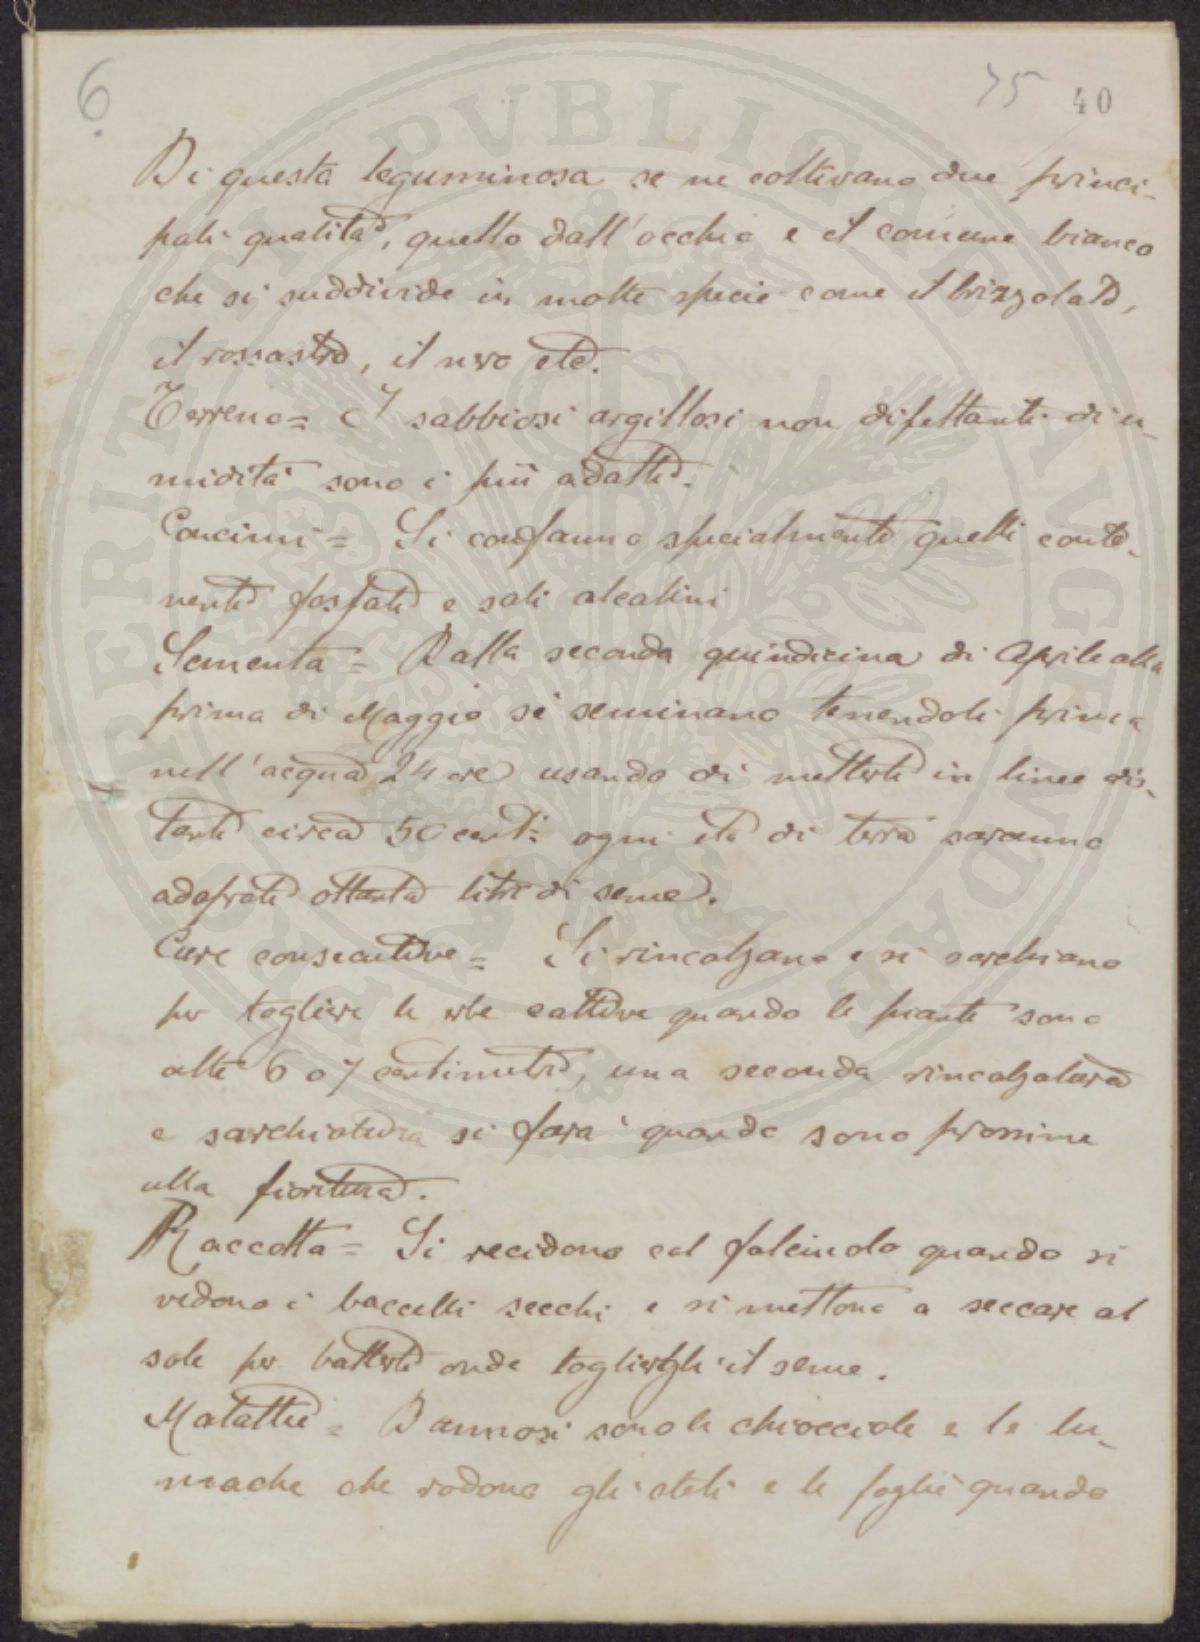 6.
75 40
Di questa leguminosa se ne coltivano due princi-
pali qualità, quello dall'occhio e il comune bianco
che si suddivide in molte specie come il brizzolato,
il rossastro, il nero etc.
Terreno = I sabbiosi argillosi non difettanti di u-
midità sono i più adatti.
Concimi = Si confanno specialmente quelli conte-
nenti fosfati e sali alcalini
Sementa = Dalla seconda quindicina di Aprile alla
prima di Maggio si seminano tenendoli prima
nell'acqua 24 ore usando di metterli in linee dis-
tanti circa 50 cent: ogni eta di terra saranno
adoprati ottanta litri di seme.
Cure consecutive = Si rincalzano e si sarchiano
per togliere le erbe cattive quando le piante sono
alte 6 o 7 centimetri, una seconda rincalzatura
e sarchiatura si farà quando sono prossime
alla fioritura.
Raccolta = Si recidono col falciuolo quando si
vedono i baccelli secchi e si mettono a seccare al
sole per batterli onde toglierghi il seme.
Malattie = Dannosi sono le chiocciole e le lu-
mache che rodono gli steli e le foglie quando
PVBLICAE AVGENDAE PROSPERITATI